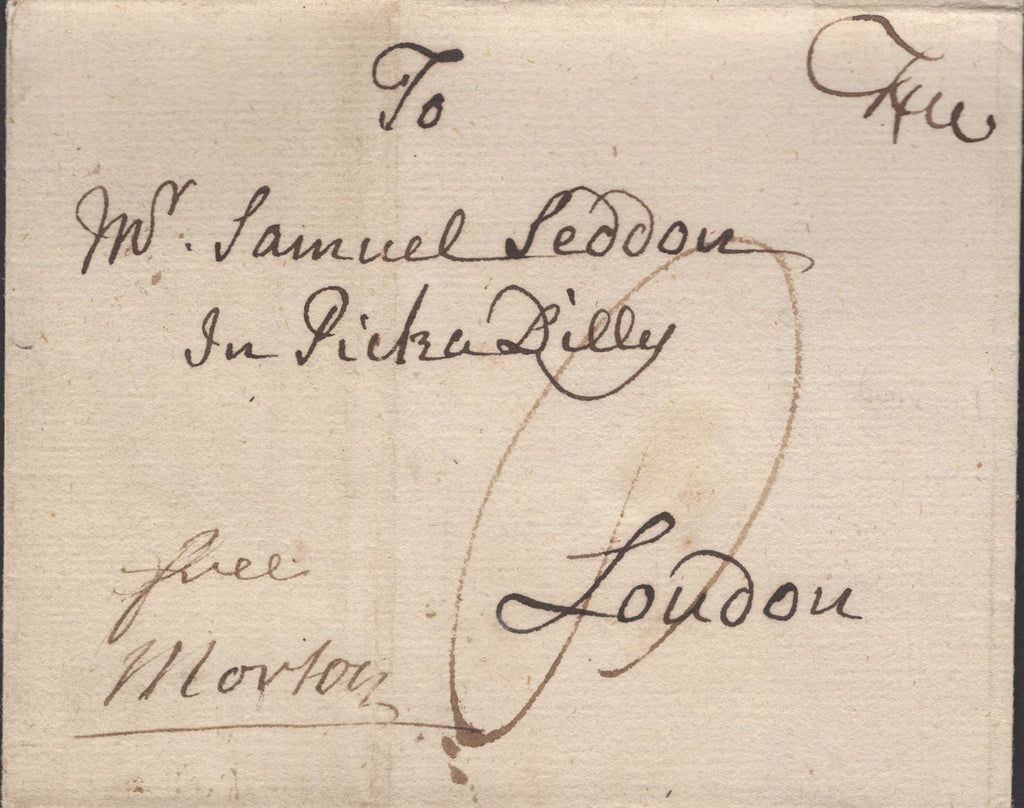 Free
To
Mr. Samuel Seddon
In Picka Dilly
London
free
Morton